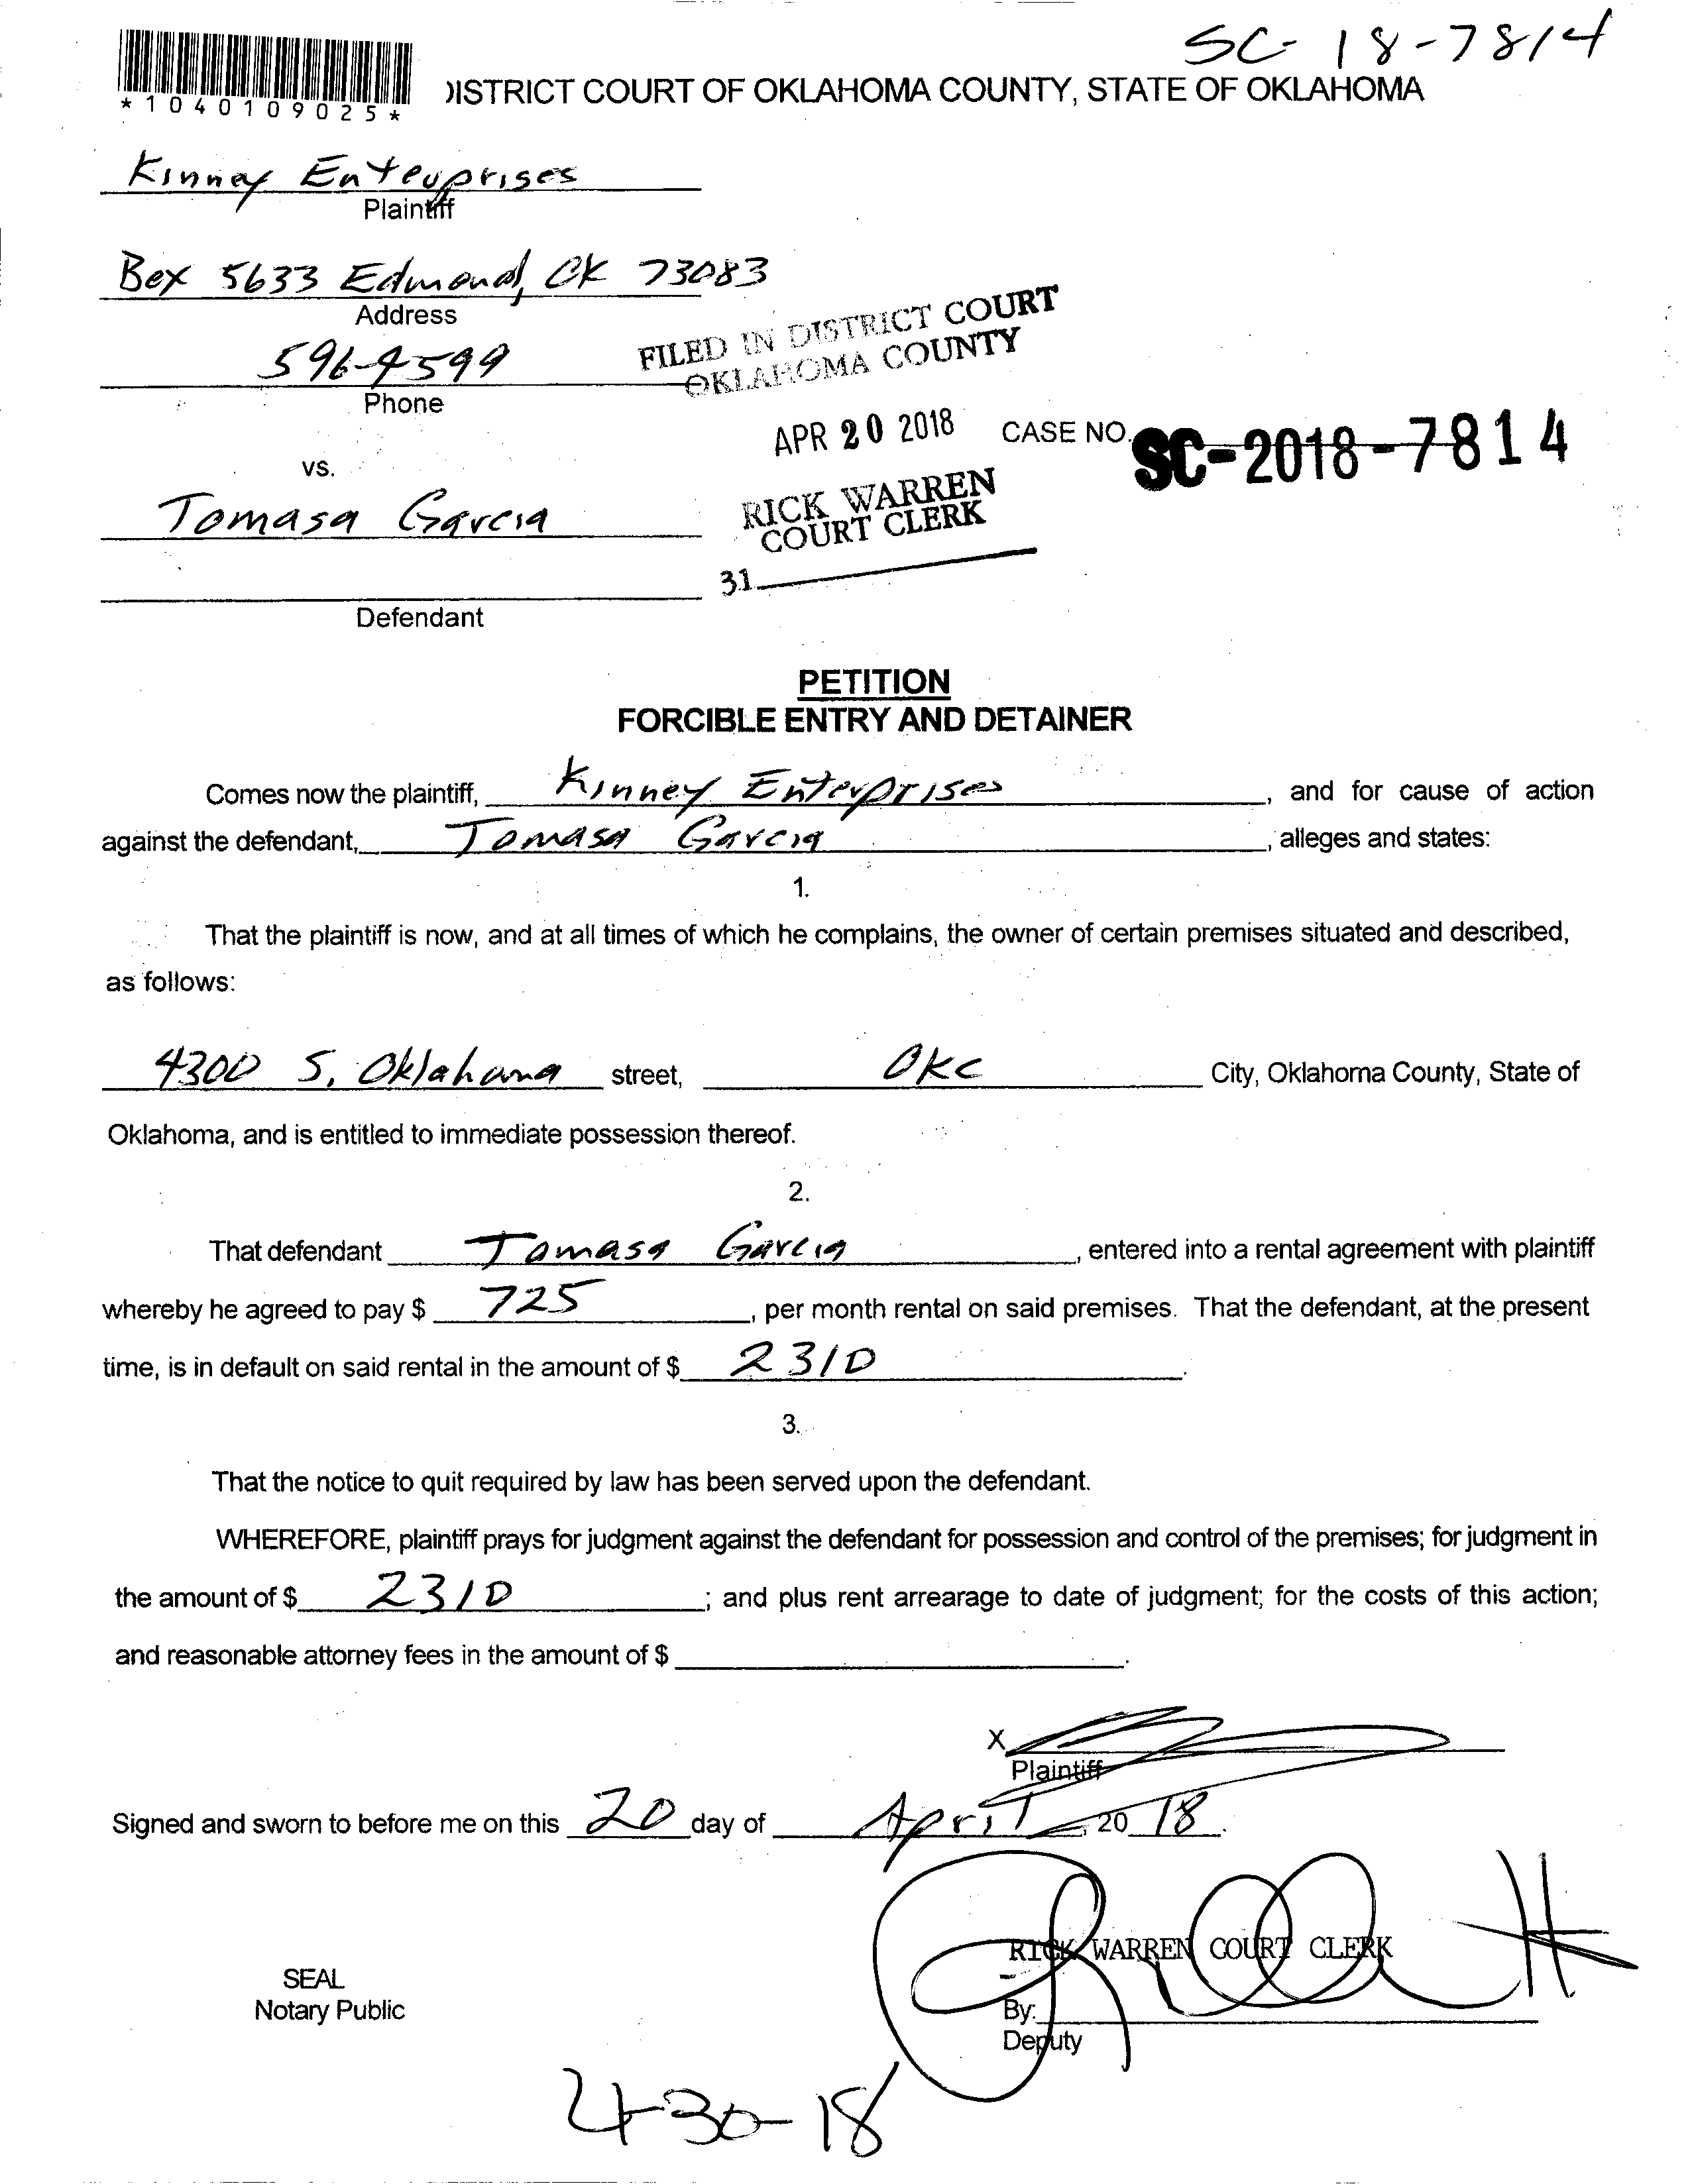 SC-18-7814
*1040109025*
DISTRICT COURT OF OKLAHOMA COUNTY, STATE OF OKLAHOMA
Kinney Enterprises
Plaintiff
Box 5633 Edmond, OK 73083
Address
596-4599
Phone
FILED IN DISTRICT COURT
OKLAHOMA COUNTY
APR 20 2018
CASE NO. SC-2018-7814
vs.
RICK WARREN
COURT CLERK
Tomasa Garcia
31
Defendant
PETITION
FORCIBLE ENTRY AND DETAINER
Comes now the plaintiff, Kinney Enterprises, and for cause of action
against the defendant, Tomasa Garcia, alleges and states:
1.
That the plaintiff is now, and at all times of which he complains, the owner of certain premises situated and described,
as follows:
4300 S. Oklahoma street, OKC City, Oklahoma County, State of
Oklahoma, and is entitled to immediate possession thereof.
2.
That defendant Tomasa Garcia, entered into a rental agreement with plaintiff
whereby he agreed to pay $ 725, per month rental on said premises. That the defendant, at the present
time, is in default on said rental in the amount of $ 2310.
3.
That the notice to quit required by law has been served upon the defendant.
WHEREFORE, plaintiff prays for judgment against the defendant for possession and control of the premises; for judgment in
the amount of $ 2310; and plus rent arrearage to date of judgment; for the costs of this action;
and reasonable attorney fees in the amount of $
X
Plaintiff
Signed and sworn to before me on this 20 day of April, 20 18.
RICK WARREN COURT CLERK
SEAL
Notary Public
By:
Deputy
4-30-18